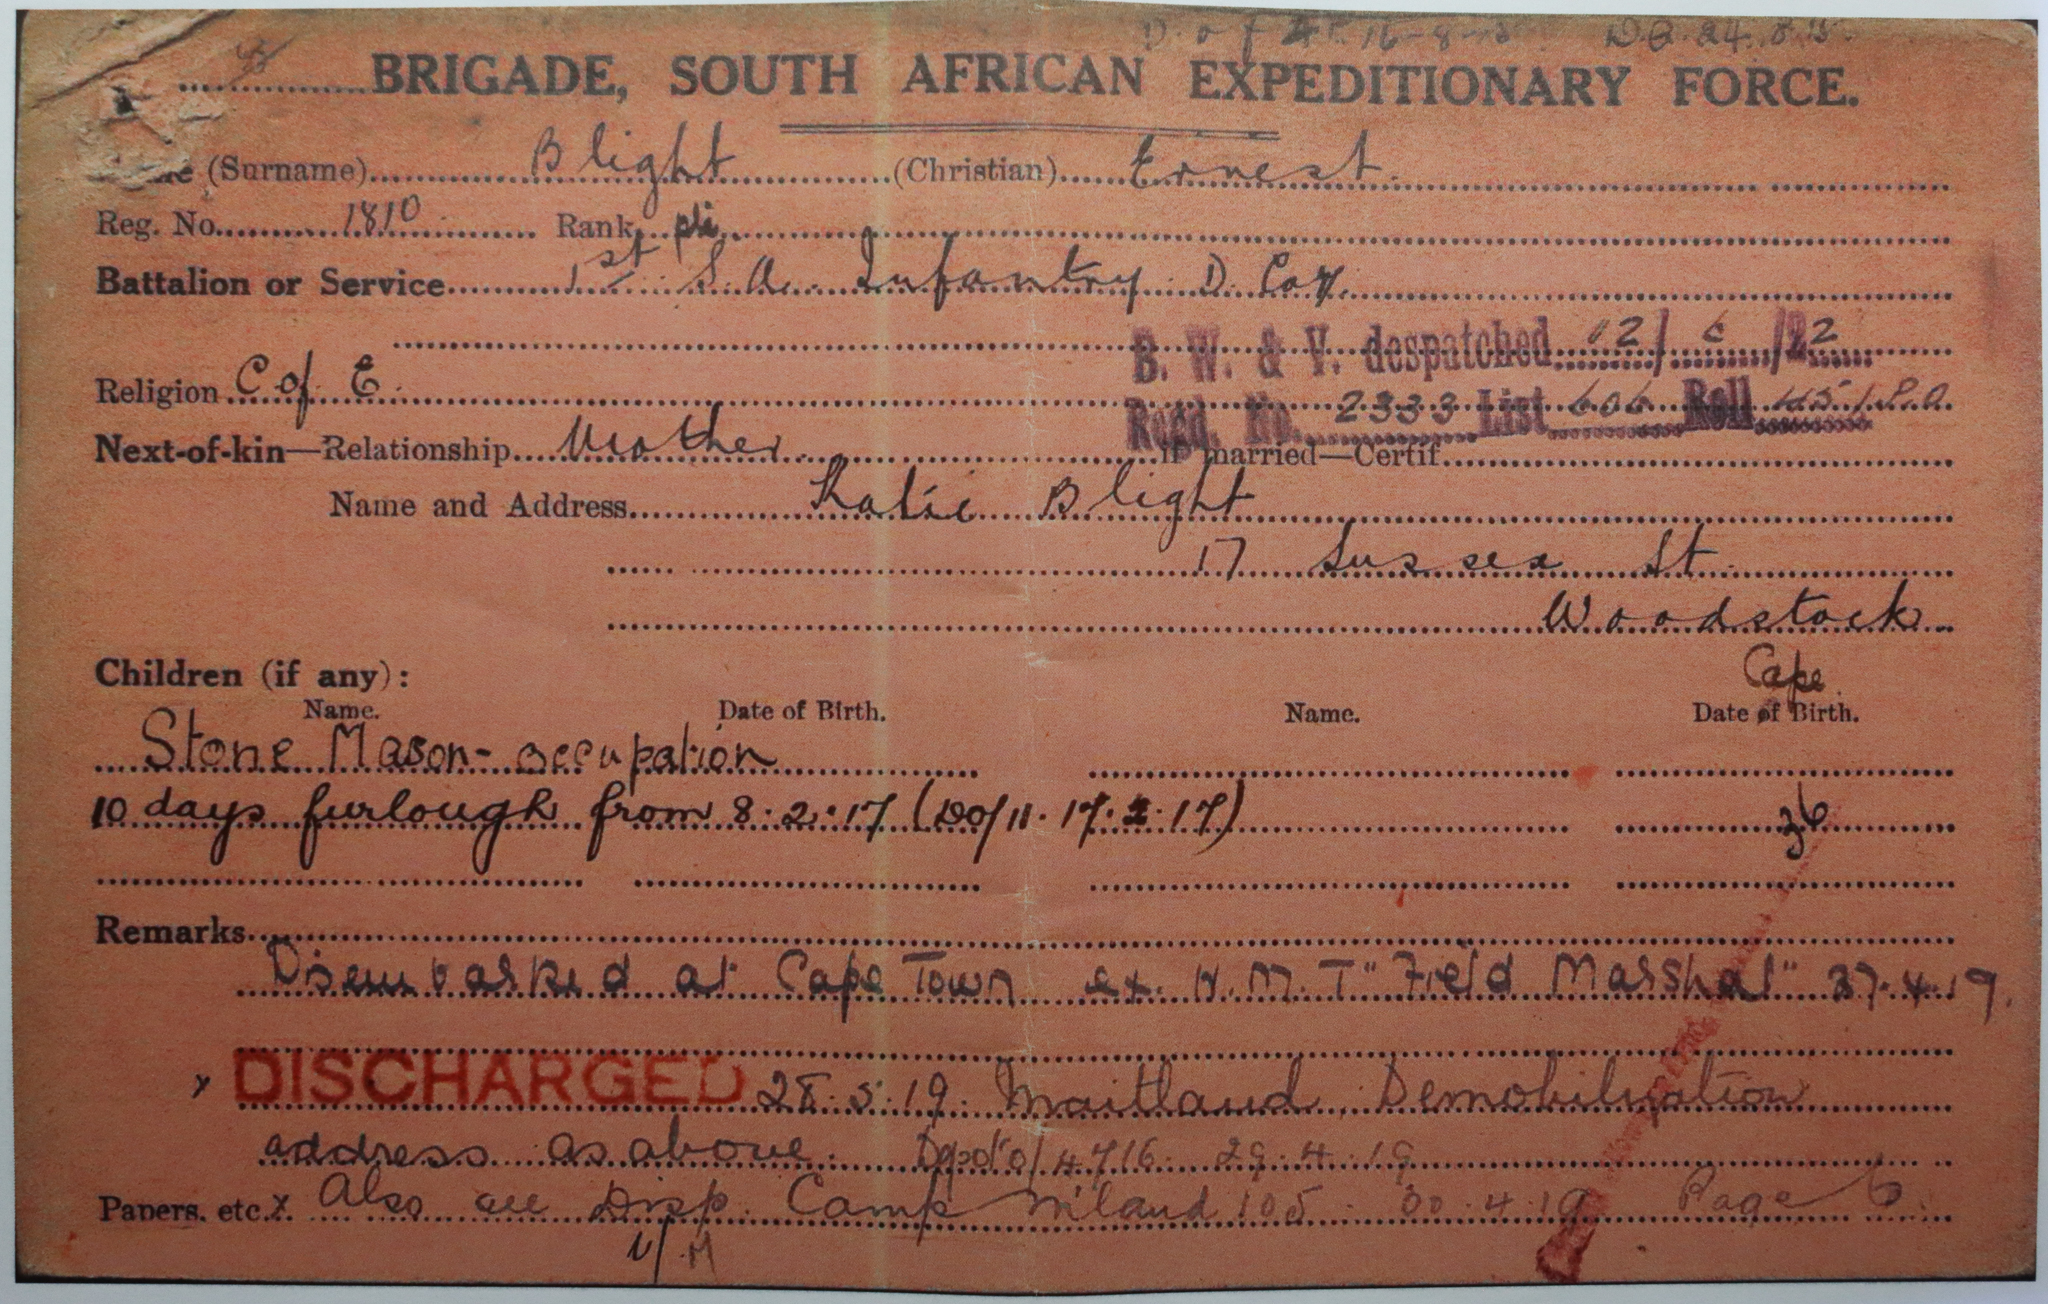 D. of E. 16-8-15. D.O. 24.8.15.
BRIGADE, SOUTH AFRICAN EXPEDITIONARY FORCE.
(Surname) Blight (Christian) Ernest.
Reg. No. 1810 Rank
Battalion or Service 1st S.A. Infantry D. Coy.
B. W. & V. despatched 12/6/22
Religion C of E.
Regd. No. 2333 List 606 Roll 45/S.A.
Next-of-kin—Relationship Mother. If married—Certif.
Name and Address Katie Blight
17 Sussex St.
Woodstock
Cape.
Children (if any):
Name. Date of Birth. Name. Date of Birth.
Stone Mason- occupation
10 days furlough from 8.2.17 (DO/11. 17.2.17) 36
Remarks
Disembarked at Cape Town ex. H.M.T "Field Marshal" 27.4.19.
x DISCHARGED 28.5.19. Maitland. Demobilization
address as above. 4716. 29.4.19
Papers, etc. x Also see Disp. Camp M'land 105 30.4.19 Page 6.